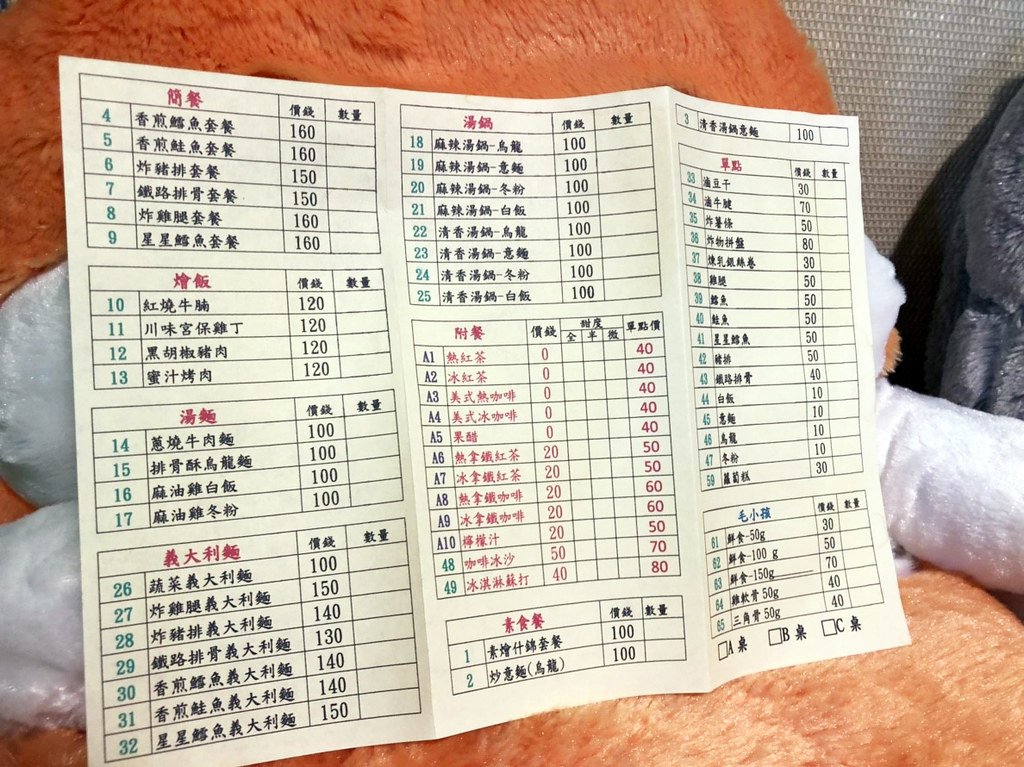 簡餐 價錢 數量
4 香煎鱈魚套餐 160
5 香煎鮭魚套餐 160
6 炸豬排套餐 150
7 鐵路排骨套餐 150
8 炸雞腿套餐 160
9 星星鱈魚套餐 160
燴飯 價錢 數量
10 紅燒牛腩 120
11 川味宮保雞丁 120
12 黑胡椒豬肉 120
13 蜜汁烤肉 120
湯麵 價錢 數量
14 蔥燒牛肉麵 100
15 排骨酥烏龍麵 100
16 麻油雞白飯 100
17 麻油雞冬粉 100
義大利麵 價錢 數量
26 蔬菜義大利麵 100
27 炸雞腿義大利麵 150
28 炸豬排義大利麵 140
29 鐵路排骨義大利麵 130
30 香煎鱈魚義大利麵 140
31 香煎鮭魚義大利麵 140
32 星星鱈魚義大利麵 150
湯鍋 價錢 數量
18 麻辣湯鍋-烏龍 100
19 麻辣湯鍋-意麵 100
20 麻辣湯鍋-冬粉 100
21 麻辣湯鍋-白飯 100
22 清香湯鍋-烏龍 100
23 清香湯鍋-意麵 100
24 清香湯鍋-冬粉 100
25 清香湯鍋-白飯 100
附餐 價錢 甜度 單點價
全 半 微
A1 熱紅茶 0 40
A2 冰紅茶 0 40
A3 美式熱咖啡 0 40
A4 美式冰咖啡 0 40
A5 果醋 0 40
A6 熱拿鐵紅茶 20 50
A7 冰拿鐵紅茶 20 50
A8 熱拿鐵咖啡 20 60
A9 冰拿鐵咖啡 20 60
A10 檸檬汁 20 50
48 咖啡冰沙 50 70
49 冰淇淋蘇打 40 80
素食餐 價錢 數量
1 素燴什錦套餐 100
2 炒意麵(烏龍) 100
3 清香湯鍋意麵 100
單點 價錢 數量
33 滷豆干 30
34 滷牛腱 70
35 炸薯條 50
36 炸物拼盤 80
37 煉乳銀絲卷 30
38 雞腿 50
39 鱈魚 50
40 鮭魚 50
41 星星鱈魚 50
42 豬排 50
43 鐵路排骨 40
44 白飯 10
45 意麵 10
46 烏龍 10
47 冬粉 10
59 蘿蔔糕 30
毛小孩 價錢 數量
61 鮮食-50g 30
62 鮮食-100 g 50
63 鮮食-150g 70
64 雞軟骨 50g 40
65 三角骨 50g 40
□A 桌 □B 桌 □C 桌